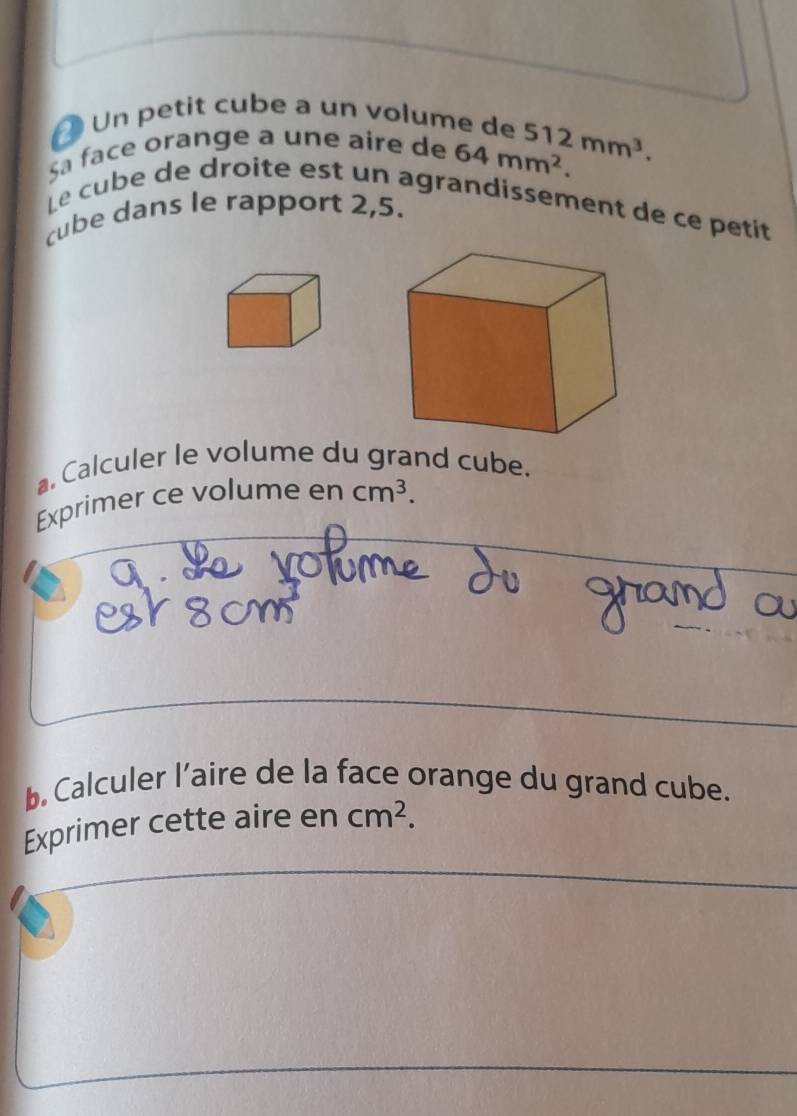 2 Un petit cube a un volume de 512 mm³.
Sa face orange a une aire de 64 mm².
Le cube de droite est un agrandissement de ce petit
cube dans le rapport 2,5.
a. Calculer le volume du grand cube.
Exprimer ce volume en cm³.
a. Le volume du grand
est 8 cm³
b. Calculer l'aire de la face orange du grand cube.
Exprimer cette aire en cm².